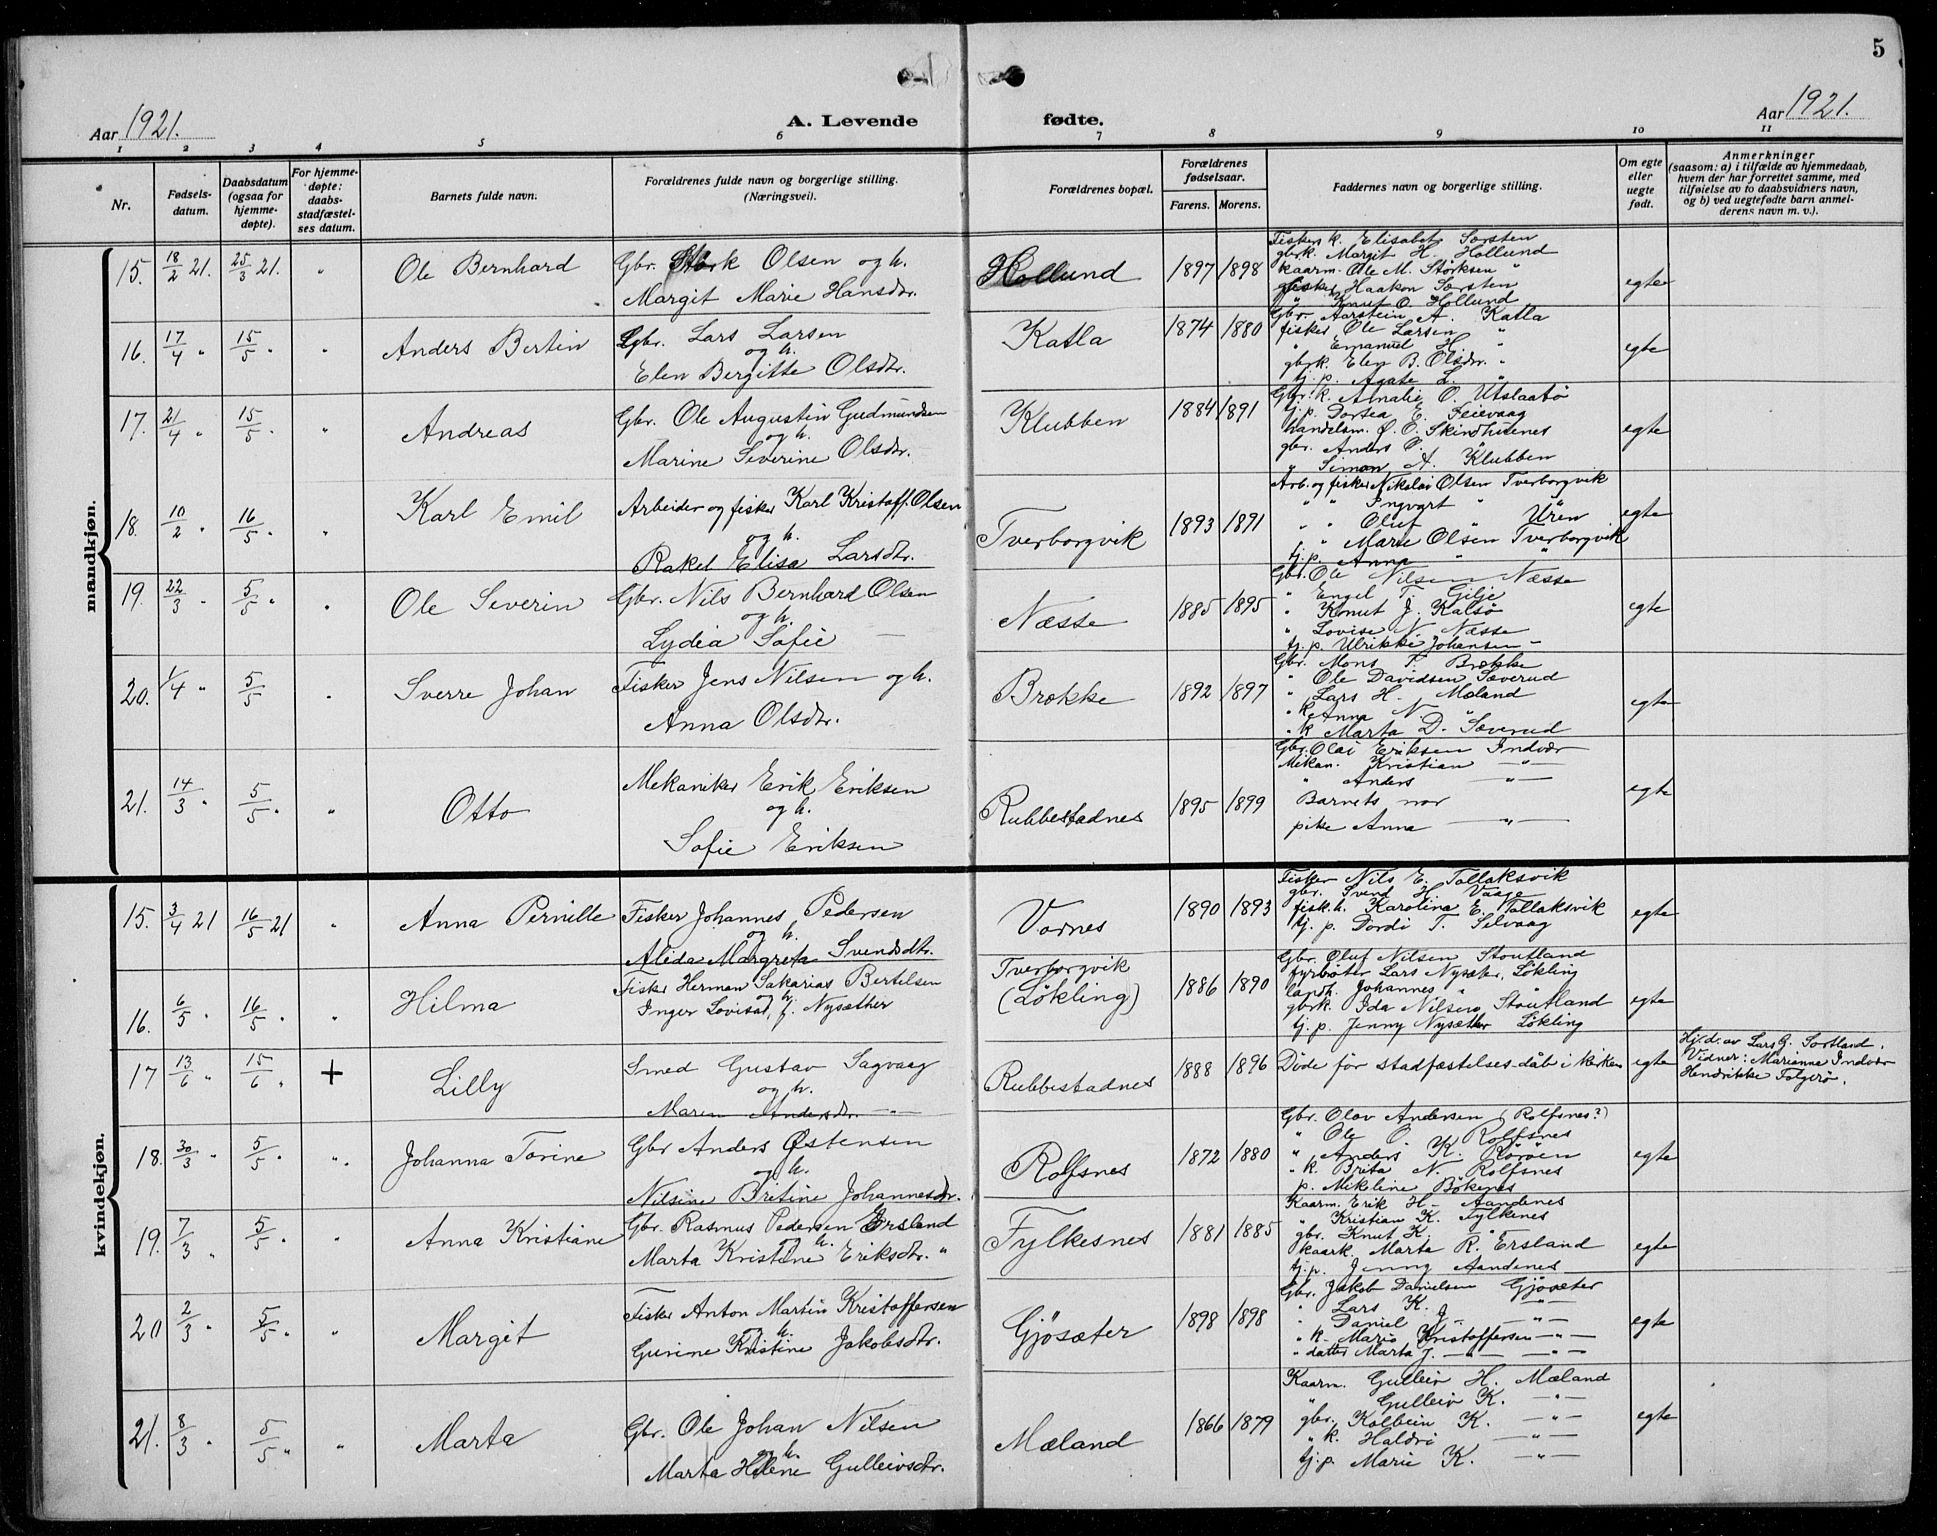 5
Aar 1921. A. Levende fødte. Aar 1921.
1 2 3 4 5 6 7 8 9 10 11
Nr. Fødsels-datum. Daabsdatum (ogsaa for hjemme-døpte). For hjemme-døpte: daabs-stadfæstel-ses datum. Barnets fulde navn. Forældrenes fulde navn og borgerlige stilling. (Næringsvei). Forældrenes bopæl. Forældrenes fødselsaar. Farens. Morens. Faddernes navn og borgerlige stilling. Om egte eller uegte født. Anmerkninger (saasom: a) i tilfælde av hjemmedaab, hvem der har forrettet samme, med tilføielse av to daabsvidners navn, og b) ved uegtefødte barn anmel-derens navn m. v.).
mandkjøn.
15. 18/2 21. 25/3 21. " Ole Bernhard
Gbr. Størk Olsen og h.
Margit Marie Hansdtr.
Hollund 1897 1898
Fiskers k. Elisabet Sørsten
gbrk. Margit H. Hollund
kaarm. Ole M. Størksen "
fisker Haakon Sørsten
" Knut O. Hollund
egte
16. 17/4 " 15/5 " " Anders Bertin
Gbr. Lars Larsen
og h.
Elen Bergitte Olsdtr.
Katla 1874 1880
Gbr. Aarstein A. Katla
fisker Ole Larsen "
" Emanuel H. "
gbrk. Elen B. Olsdtr. "
tj. p. Agate L. "
egte
17. 21/4 " 15/5 " " Andreas
Gbr. Ole Augustin Gudmundsen
og h.
Marine Severine Olsdtr.
Klubben 1884 1891
Gbr. k. Amalie O. Utslaatø
tj. p. Dorsea E. Feievaag
handelsm. O. O. Skindhuenes
gbr. Anders O. "
" Simon A. Klubben
egte
18. 10/2 " 16/5 " " Karl Emil
Arbeider og fisker Karl Kristoff. Olsen
og h.
Rakel Elisa Larsdtr.
Tverborgvik 1893 1891
Arb. og fisker Nikolai Olsen Tverborgvik
" " Ingvart " "
" " Oluf " Uren
" Marie Olsen Tverborgvik
tj. p. Anna " "
egte
19. 22/3 " 5/5 " " Ole Severin
Gbr. Nils Bernhard Olsen
og h.
Lydia Sofie —
Næsse 1885 1895
Gbr. Ole Nilsen Næsse
" Engel T. Gilje
" Knut J. Kalsø
" Lovise N. Næsse
tj. p. Ulrikke Johansen "
egte
20. 1/4 " 5/5 " Sverre Johan
Fisker Jens Nilsen og h.
Anna Olsdtr.
Brokke 1892 1897
Gbr. Mons T. Brokke
" Ole Davidsen Sæverud
" Lars H. Mæland
" k. Anna N. "
" k. Marta D. Sæverud
egte
21. 14/3 " 5/5 " " Otto
Mekaniker Erik Eriksen
og h.
Sofie Eriksen
Rubbestadnes 1895 1899
Gbr. Olai Eriksen Indvær
Mekan. Kristian — " —
" Anders — " —
Barnets mor
pike Anna — " —
egte
kvindekjøn.
15. 3/4 21 16/5 21 " Anna Pernille
Fisker Johannes Pedersen
og h.
Alida Margreta Svendsdtr.
Vornes 1890 1893
Fisker Nils E. Tollaksvik
gbr. Svend H. Vaage
fisk. h. Karolina E. Tollaksvik
tj. p. Dordi T. Selvaag
egte
16. 6/5 " 16/5 " " Hilma
Fisker Herman Sakarias Bertelsen
og h.
Inger Lovisa, f. Nysæther
Tverborgvik
(Løkling) 1886 1890
Gbr. Oluf Nilsen Stoutland
fyrbøter Lars Nysæter, Løkling
landh. Johannes "
gbrk. Ida Nilsen, Stoutland
tj. p. Jenny Nysæther Løkling
egte
17 13/6 " 15/6 " + Lilly
Smed Gustav Sagvaag
og h.
Maren Andersdtr. — " —
Rubbestadnes 1888 1896 Døde før stadfæstelses-dåb i kirken egte
Hj.d. av Lars G. Sortland.
Vidner: Marianne Indvær
Hendrikke Folgerø.
18. 30/3 " 5/5 " " Johanna Torine
Gbr Anders Østensen
og h.
Nilsine Britine Johannesdtr.
Rolfsnes 1872 1880
Gbr. Olav Andersen (Rolfsnes?)
" Ole O. Rolfsnes
" Anders K. Rørøen
" k. Brita N. Rolfsnes
p. Mikline Bökenes
egte
19. 7/3 " 5/5 " " Anna Kristiane
Gbr. Rasmus Pedersen Ersland
og h.
Marta Kristine Eriksdtr. "
Fylkesnes 1881 1885
Kaarm. Erik H. Aandenes
" Kristian K. Fylkenes
gbr. Knut K. "
kaark. Marta R. Ersland
tj. p. Jenny Aandenes
egte
20 2/3 " 5/5 " " Margit
Fisker Anton Martin Kristoffersen
og h.
Gurine Kristine Jakobsdtr.
Gjøsæter 1898 1898
Gbr. Jakob Danielsen Gjøsæter
" Lars K. — " —
" Daniel J. — " —
" k. Marie Kristoffersen — " —
" datter Marta J. — " —
egte
21. 8/3 " 5/5 " " Marta
Gbr. Ole Johan Nilsen
og h.
Marta Helene Gulleivsdtr.
Mæland 1866 1879
Kaarm. Gulleiv H. Mæland
" Gulleiv K. — " —
gbr. Kolbein K. — " —
" k. Haldri — " —
tj. p Marie K. — " —
egte